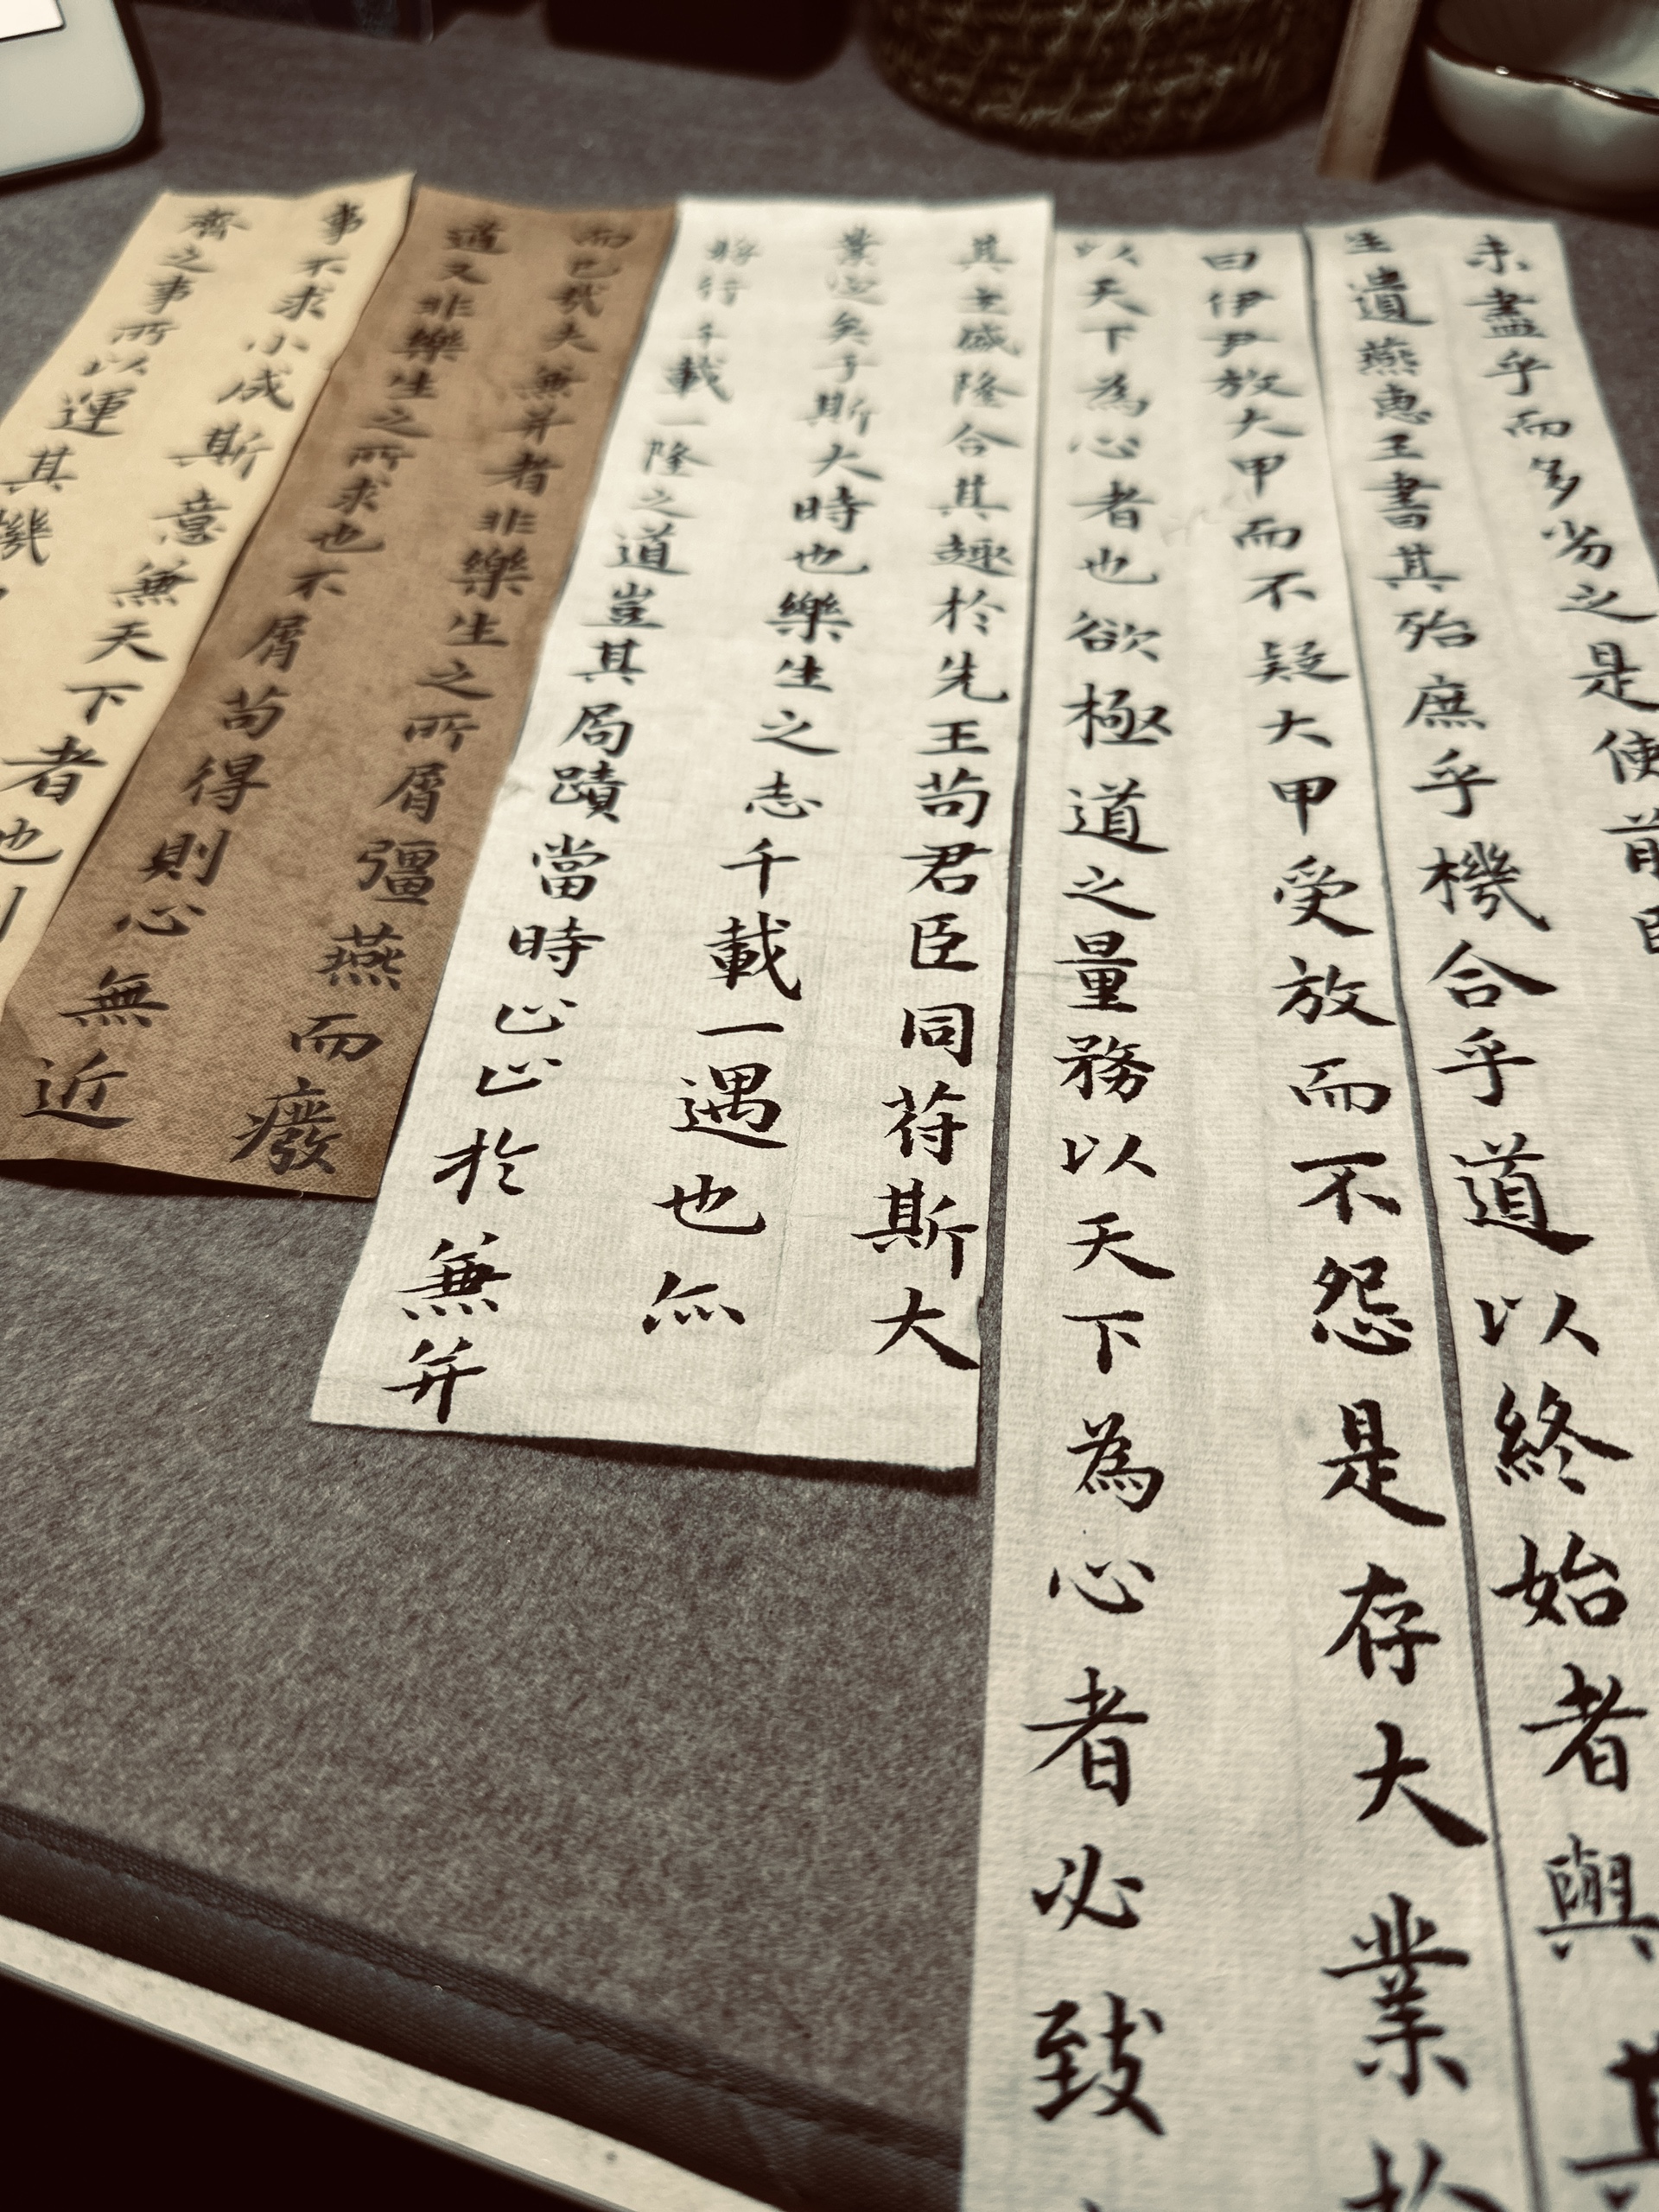 未盡乎而多劣之是使前
生遺燕惠王書其殆庶乎機合乎道以終始者與其
曰伊尹放大甲而不疑大甲受放而不怨是存大業於
以天下為心者也欲極道之量務以天下為心者必致
其主盛隆合其趣於先王苟君臣同苻斯大
業定矣于斯大時也樂生之志千載一遇也亦
將行千載一隆之道豈其局蹟當時止止於兼并
而已哉夫兼并者非樂生之所屑彊燕而癈
道又非樂生之所求也不屑苟得則心無近
事不求小成斯意兼天下者也
齊之事所以運其機